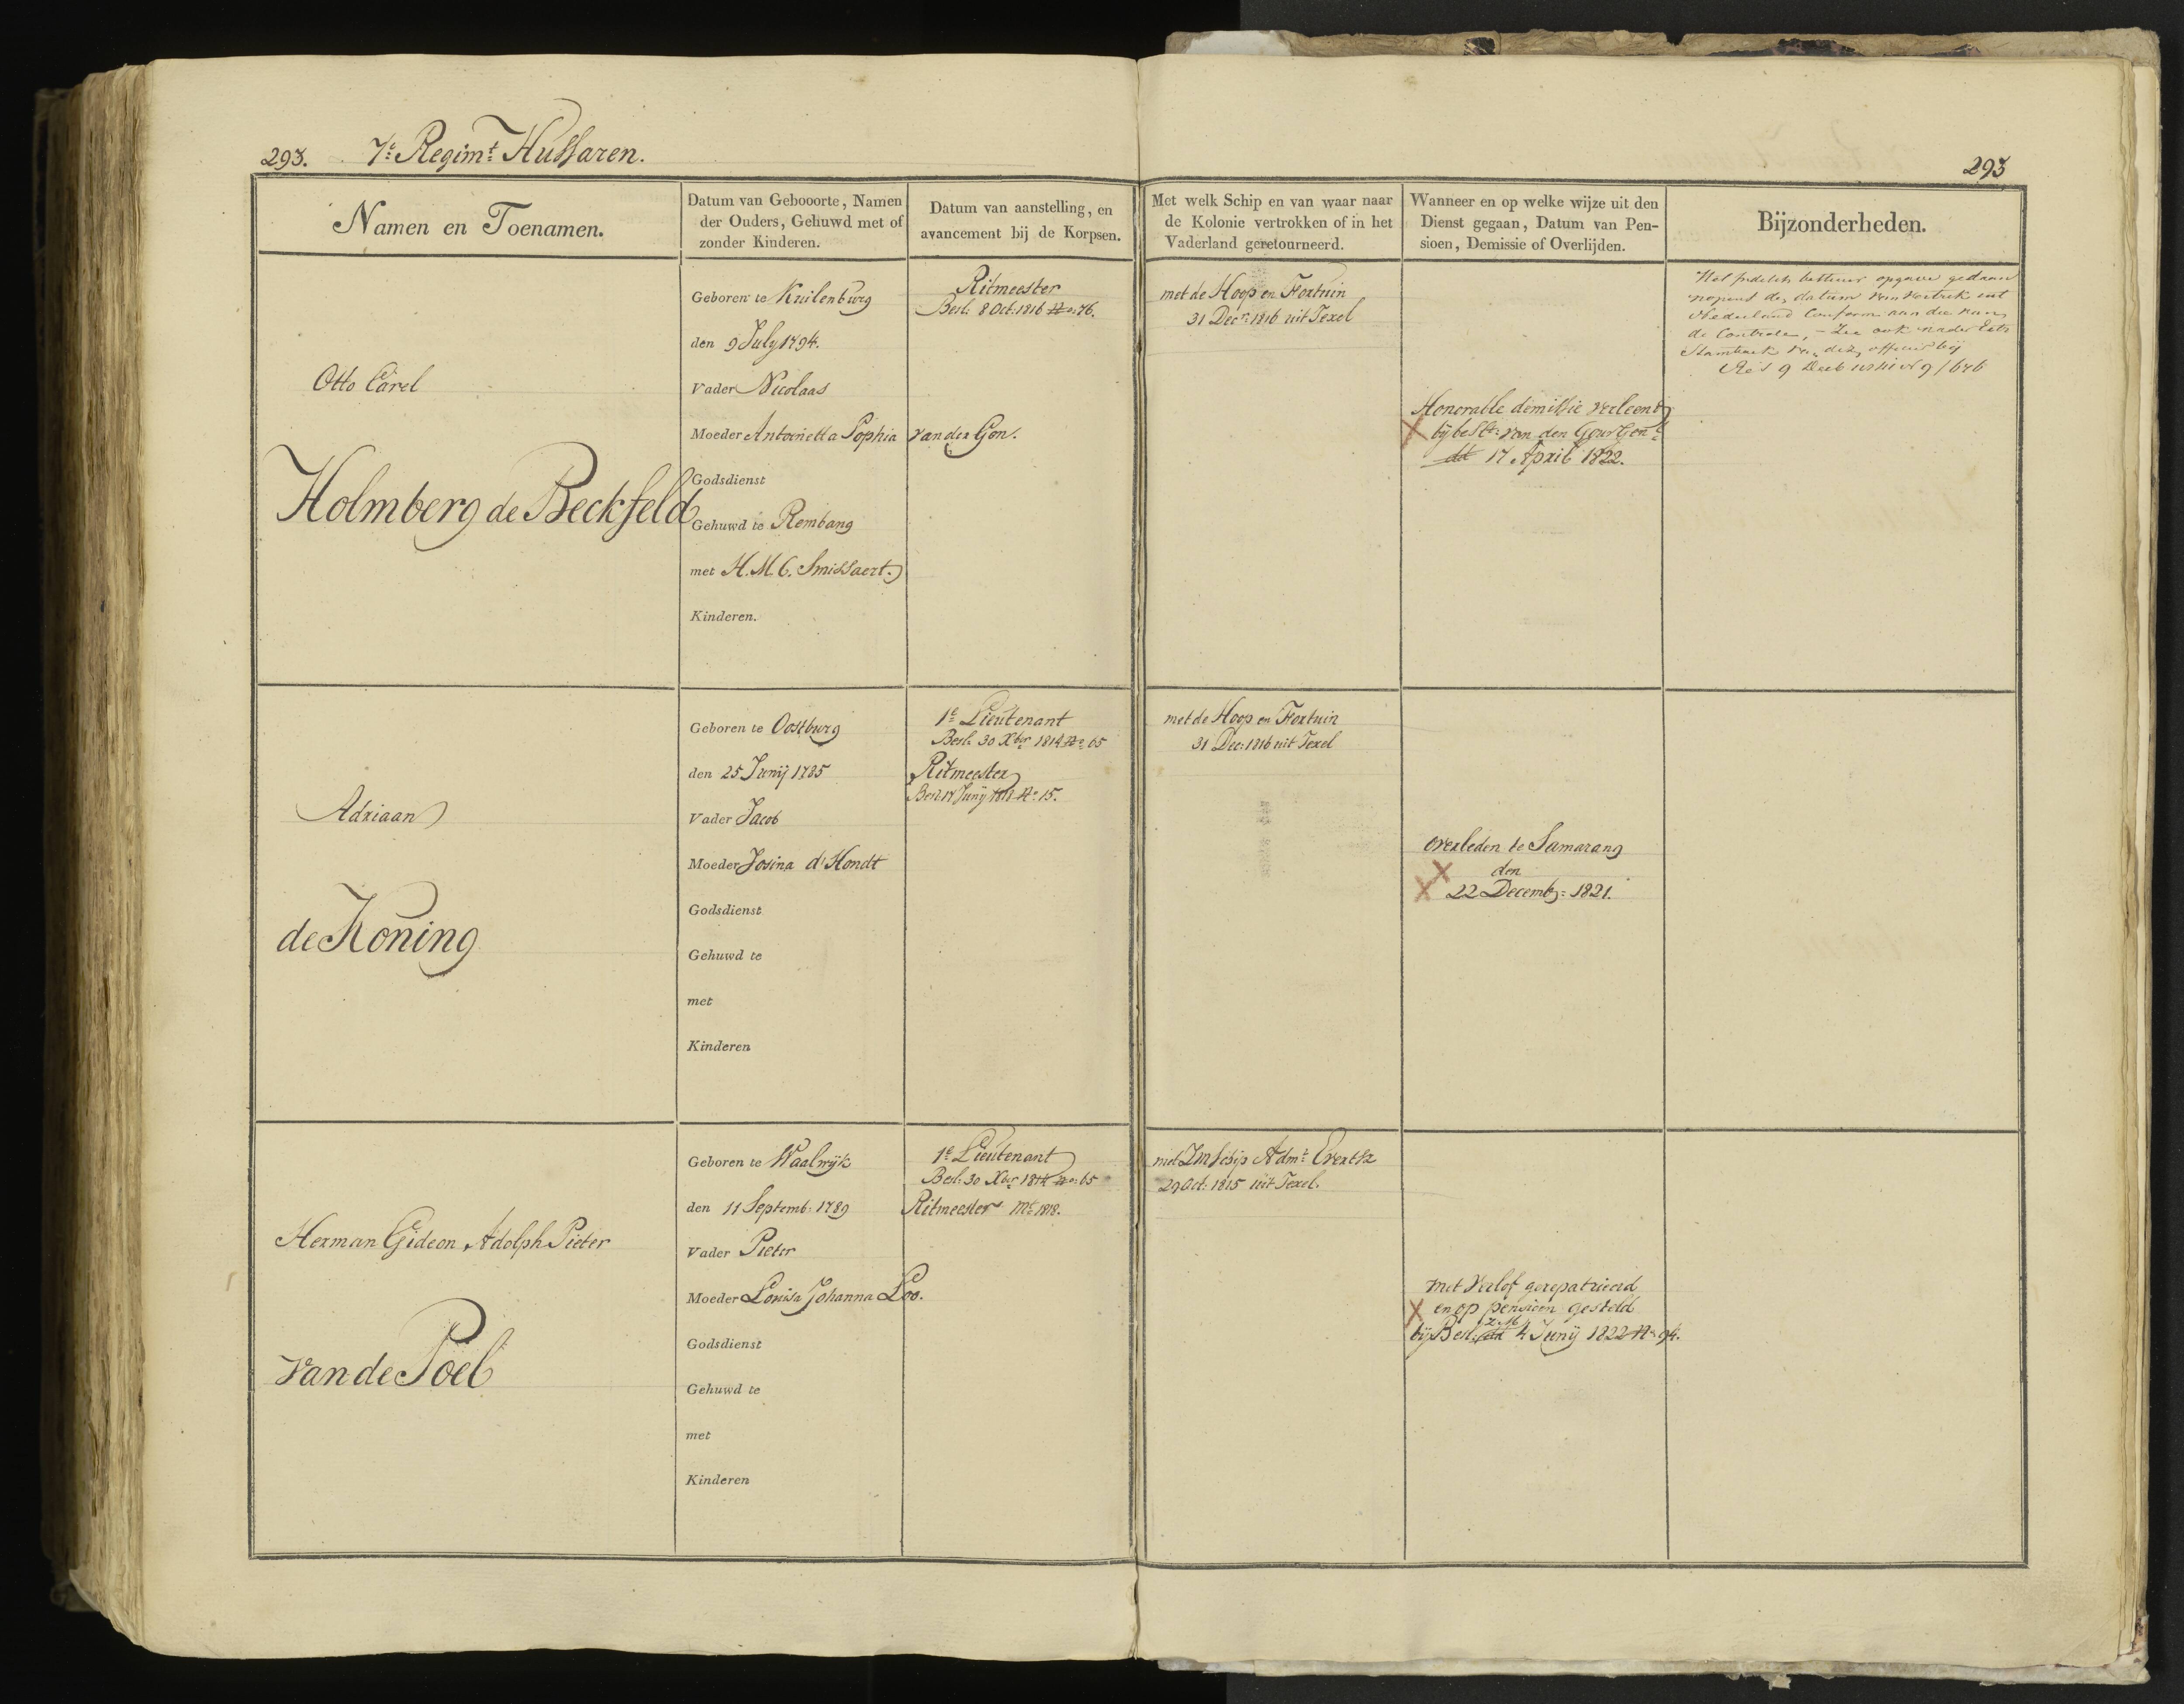 293. 7e Regimt Hussaren.
293
Namen en Toenamen.
Datum van Gebooorte, Namen
der Ouders, Gehuwd met of
zonder Kinderen.
Datum van aanstelling, en
avancement bij de Korpsen.
Met welk Schip en van waar naar
de Kolonie vertrokken of in het
Vaderland geretourneerd.
Wanneer en op welke wijze uit den
Dienst gegaan, Datum van Pen-
sioen, Demissie of Overlijden.
Bijzonderheden.
Otto Carel
Holmberg de Beckfeld
Geboren te Kuilenburg
den 9 July 1794.
Vader Nicolaas
Moeder Antoinetta Sophia van der Gon.
Godsdienst
Gehuwd te Rembang
met H. M. C. Smissaert.
Kinderen.
Ritmeester
Besl: 8 Oct: 1816 No: 76.
met de Hoop en Fortuin
31 Decr: 1816 uit Texel
Honorable demissie verleend
bij beslt: van den Gouv Genl
dd 17 April 1822.
opgave gedaan
nopens den datum van vertrek uit
Nederland conform aan die van
de Controle, - Zie ook nader Extr
Stamboek van dezen officier bij
9
Adriaan
de Koning
Geboren te Oostburg
den 25 Junij 1785
Vader Jacob
Moeder Josina d'Hondt
Godsdienst
Gehuwd te
met
Kinderen
1e Lieutenant
Besl: 30 Xber 1814 No: 65
Ritmeester
Besl: 17 Junij 1818 No: 15.
met de Hoop en Fortuin
31 Dec: 1816 uit Texel
overleden te Samarang
den
22 Decemb: 1821.
Herman Gideon Adolph Pieter
van de Poel
Geboren te Waalwijk
den 11 Septemb: 1789
Vader Pieter
Moeder Louisa Johanna Loo.
Godsdienst
Gehuwd te
met
Kinderen
1e Lieutenant
Besl: 30 Xber 1814 No: 65
Ritmeester Mt 1818.
met ZM schip Admt: Evertsz
29 Oct: 1815 uit Texel.
met verlof gerepatrieerd
en op pensioen gesteld
bij Besl: Z.M. dd 4 Junij 1822 No: 94.